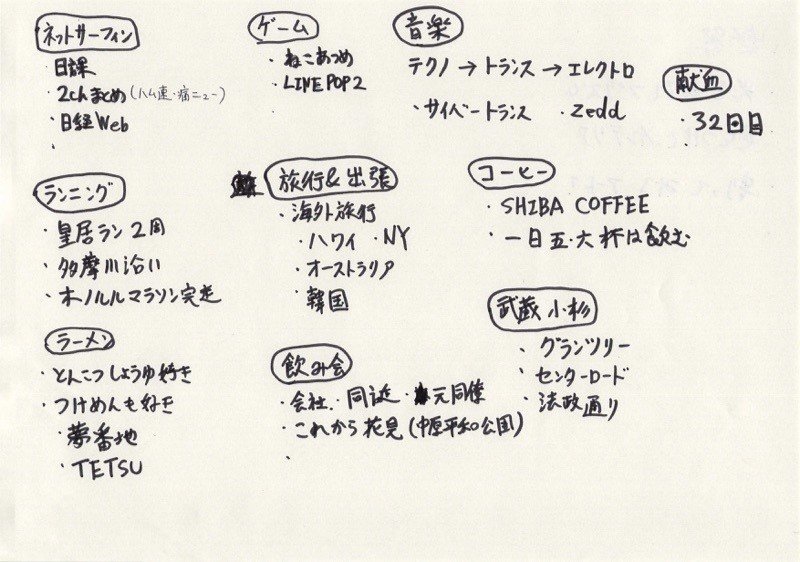 ネットサーフィン
・日課
・2chまとめ(ハム速・痛ニュー)
・日経Web
・
ゲーム
・ねこあつめ
・LINE POP2
・
音楽
テクノ→トランス→エレクトロ
・サイバートランス ・zedd
献血
・32回目
ランニング
・皇居ラン2周
・多摩川沿い
・ホノルルマラソン完走
旅行&出張
・海外旅行
・ハワイ ・NY
・オーストラリア
・韓国
コーヒー
・SHIBA COFFEE
・一日五・六杯は飲む
ラーメン
・とんこつしょうゆ好き
・つけめんも好き
・夢番地
・TETSU
飲み会
・会社、同誕・元同僚
・これから花見(中原平和公園)
・
武蔵小杉
・グランツリー
・センターロード
・法政通り